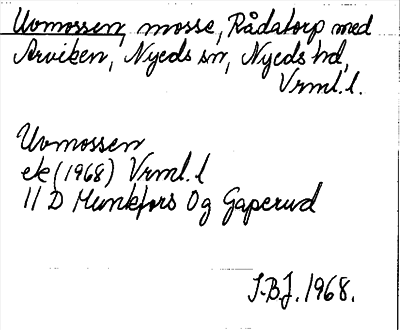 Uvmossen, mosse, Rådatorp med
Arviken, Nyeds sn, Nyeds hd,
Vrml.l.
Uvmossen
ek (1968) Vrml.l
11 D Munkfors 0g Gaperud
J.B.J. 1968.